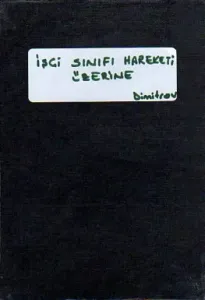 İŞÇİ SINIFI HAREKETİ
ÜZERİNE
Dimitrov